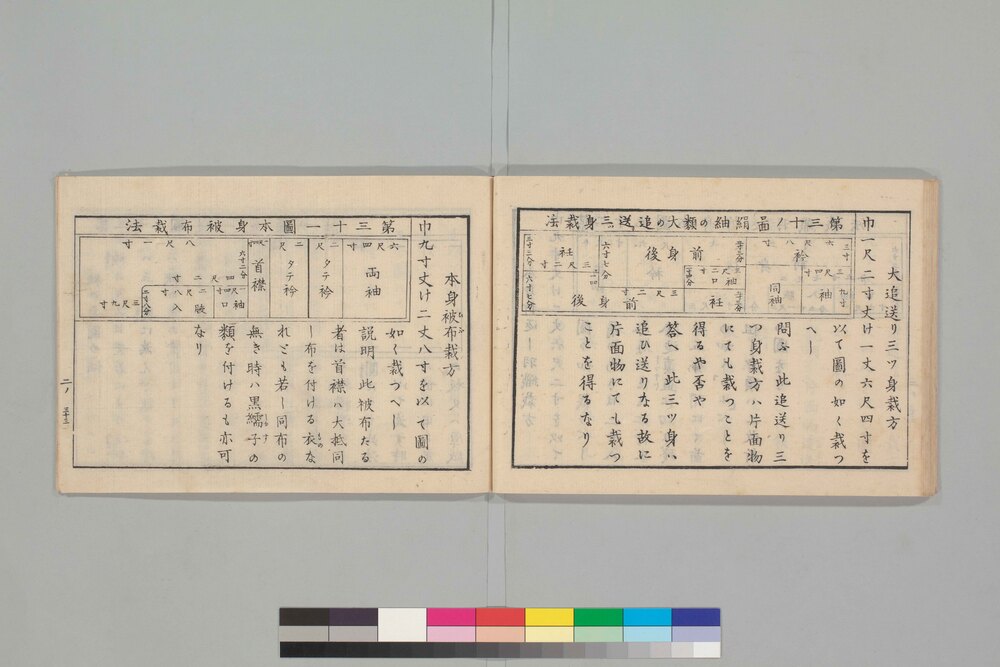 大追送り三ツ身裁方
巾一尺二寸丈け一丈六尺四寸を
以て圖の如く裁つ
へし
問ふ 此追送り三
つ身裁方ハ片面物
にても裁つことを
得るや否や
答へ 此三ツ身ハ
追ひ送りなる故に
片面物にても裁つ
ことを得るなり
第三十ノ圖絹紬の類大の追送三ツ身裁法
衿
袖
同袖
前身後
袖口
衽
衽
前身後
本身被布裁方
巾九寸丈け二丈八寸を以て圖の
如く裁つへし
説明 此被布たる
者は首襟ハ大抵同
し布を付ける衣な
れども若し同布の
無き時ハ黒繻子の
類を付けるも亦可
なり
第三十一圖本身被布裁法
六尺四寸
両袖
二尺
タテ衿
二尺
タテ衿
首襟
六寸二分
袖口
八尺一寸
二尺八寸入
三尺九寸